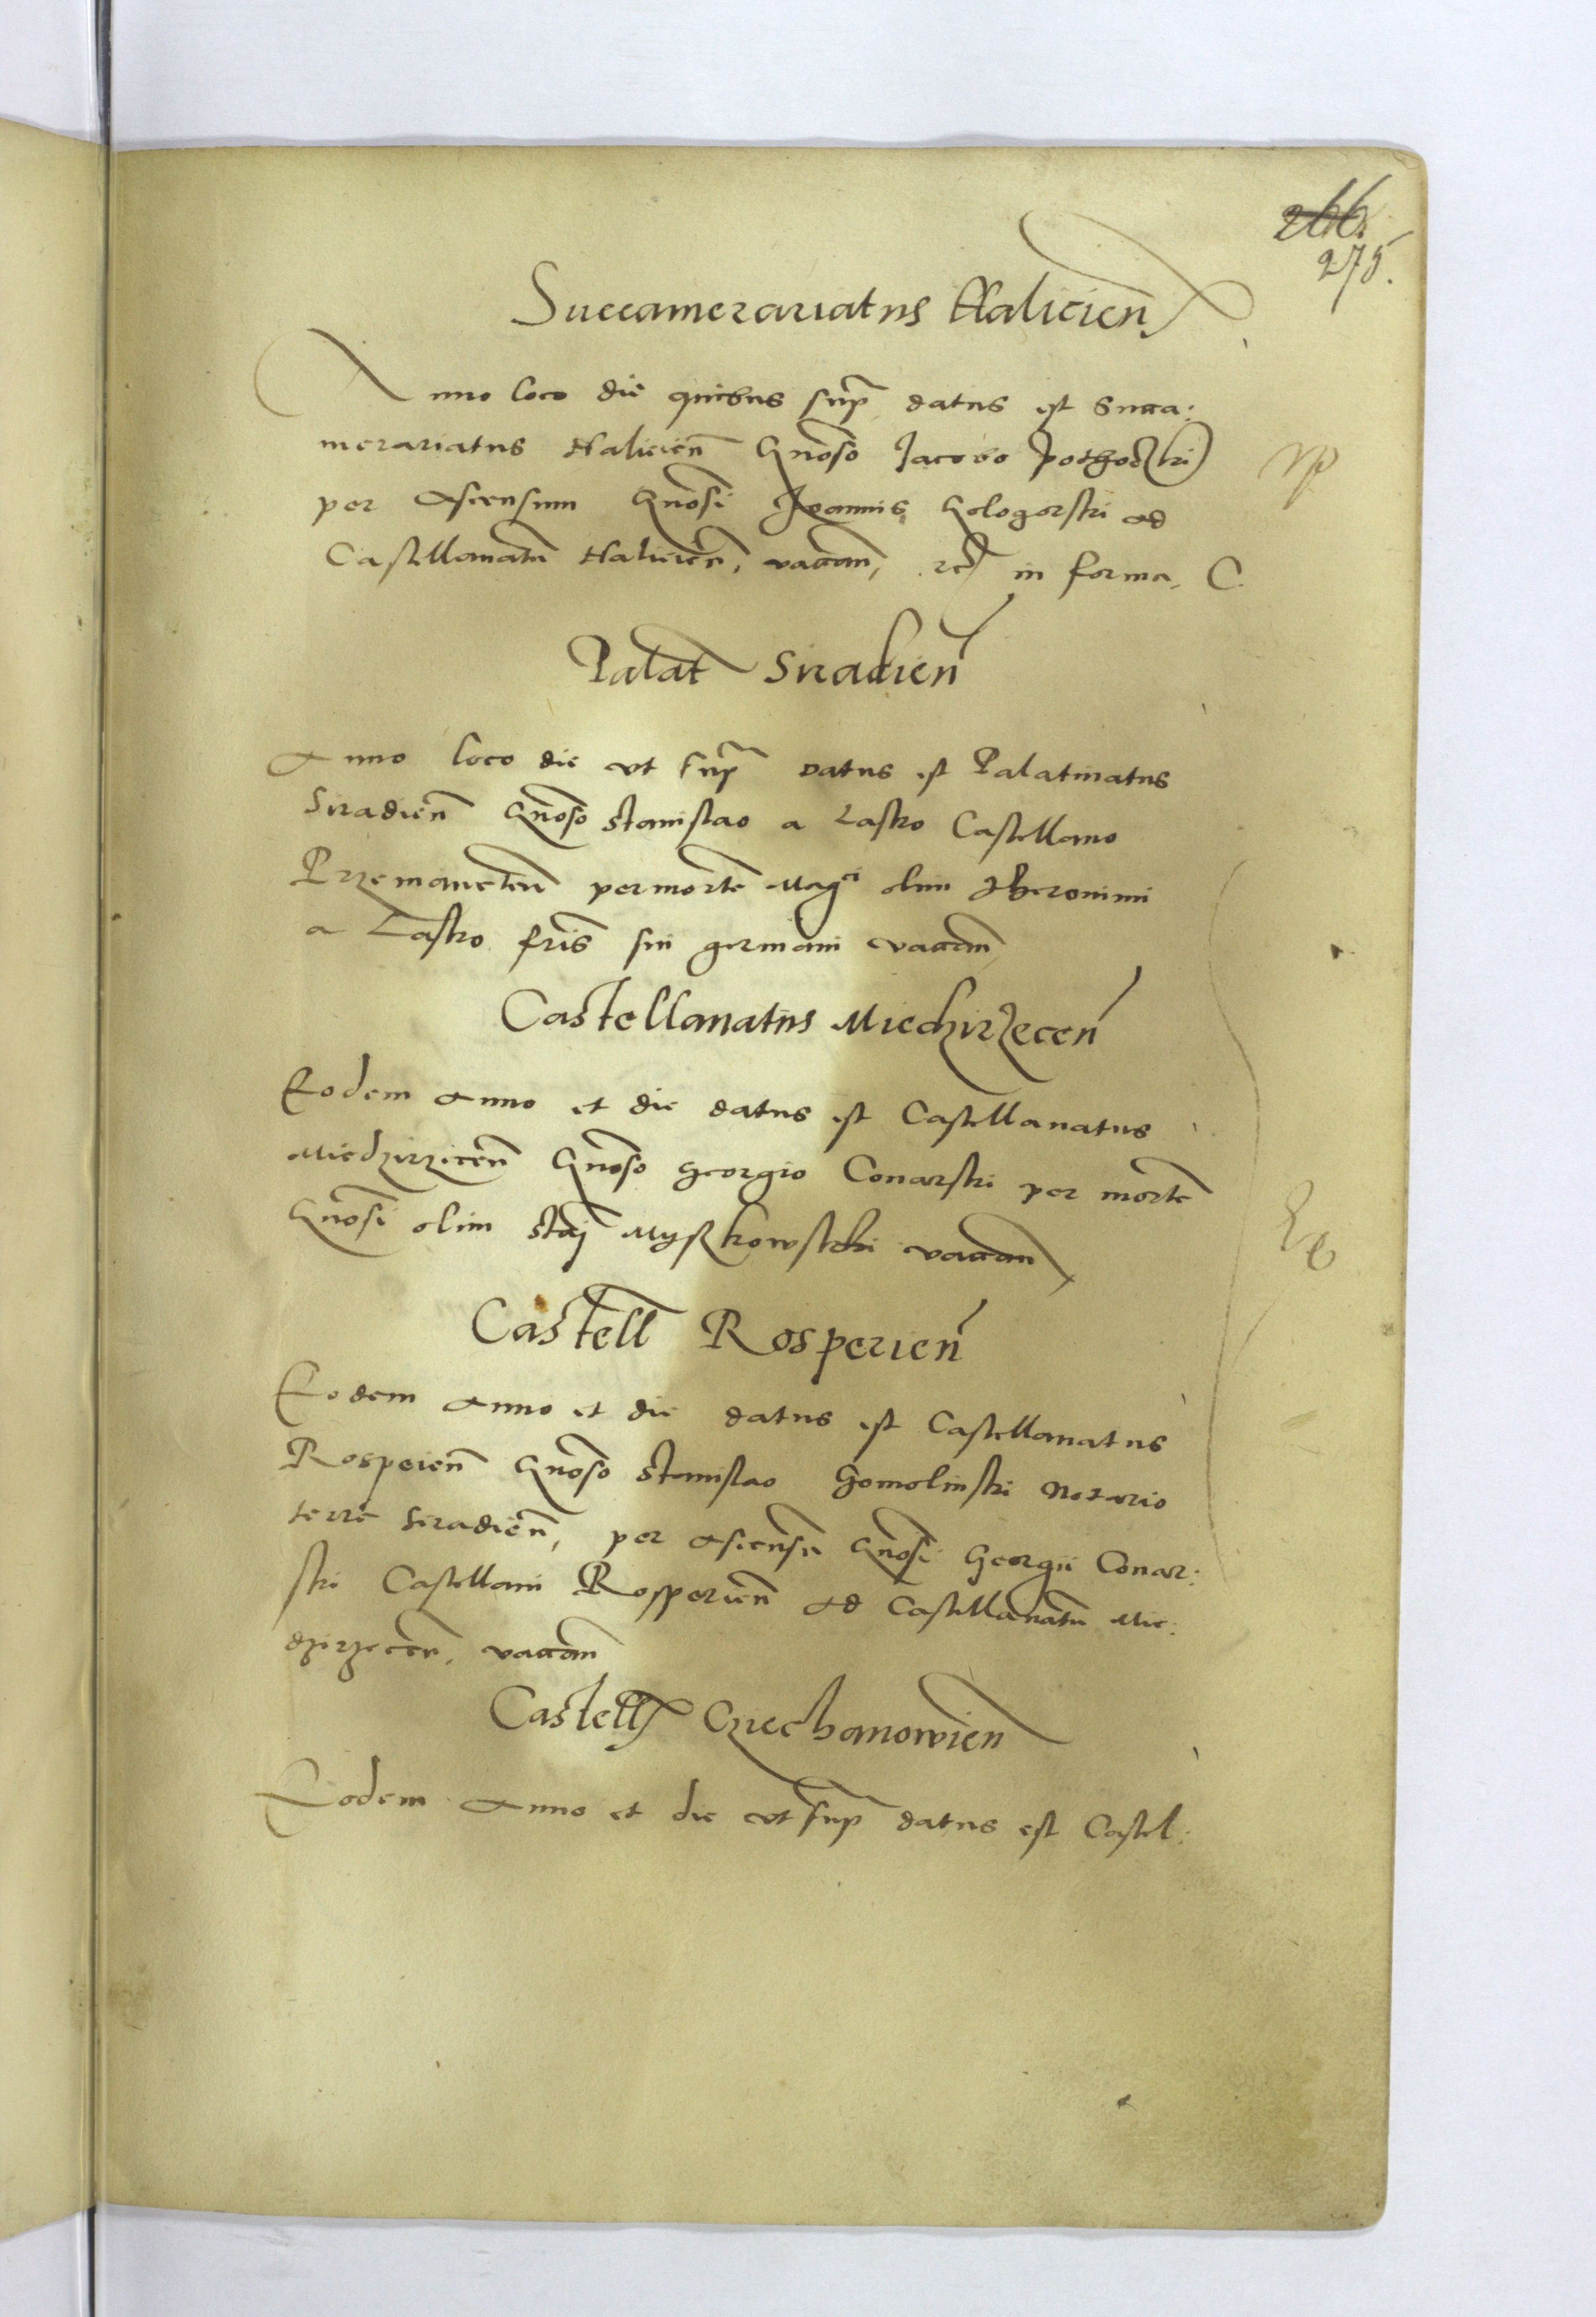 266.
275.
Succamerariatus Halicien̄
Anno loco die quibus sup̄ datus est Succa:
merariatus Halicien̄ Gn̄oso Jacobo Pothoczki
per Ascensum Gn̄osi Joannis Gologorski ad
Castellanatū Halicien̄, vacan̄, in forma. C.
Palat̄ Siradien̄
Anno loco die vt sup̄ datus est Palatinatus
Siradien̄ Gn̄oso Stanislao a Lasko Castellano
Przemancten̄ per mortē Maḡci olim Hieronimi
a Lasko fr̄is sui germani vacan̄
Castellanatus Miedzirzecen̄
Eodem Anno et die datus est Castellanatus
Miedzirzicen̄ Gn̄oso Georgio Conarski per mortē
Gn̄osi olim Stāj Myszkowski vacan̄
Castell̄ Rosperien̄
Eodem Anno et die datus est Castellanatus
Rospeien̄ Gn̄oso Stanislao Gomolinski Notario
terrē Siradien̄, per Ascensū Gn̄osi Georgii Conar:
ski Castellani Rosperien̄ ad Castellanatū Mie:
dzirzecen̄, vacan̄
Castell̄ Cziechanowien̄
Eodem Anno et die vt sup̄ datus est Castel: